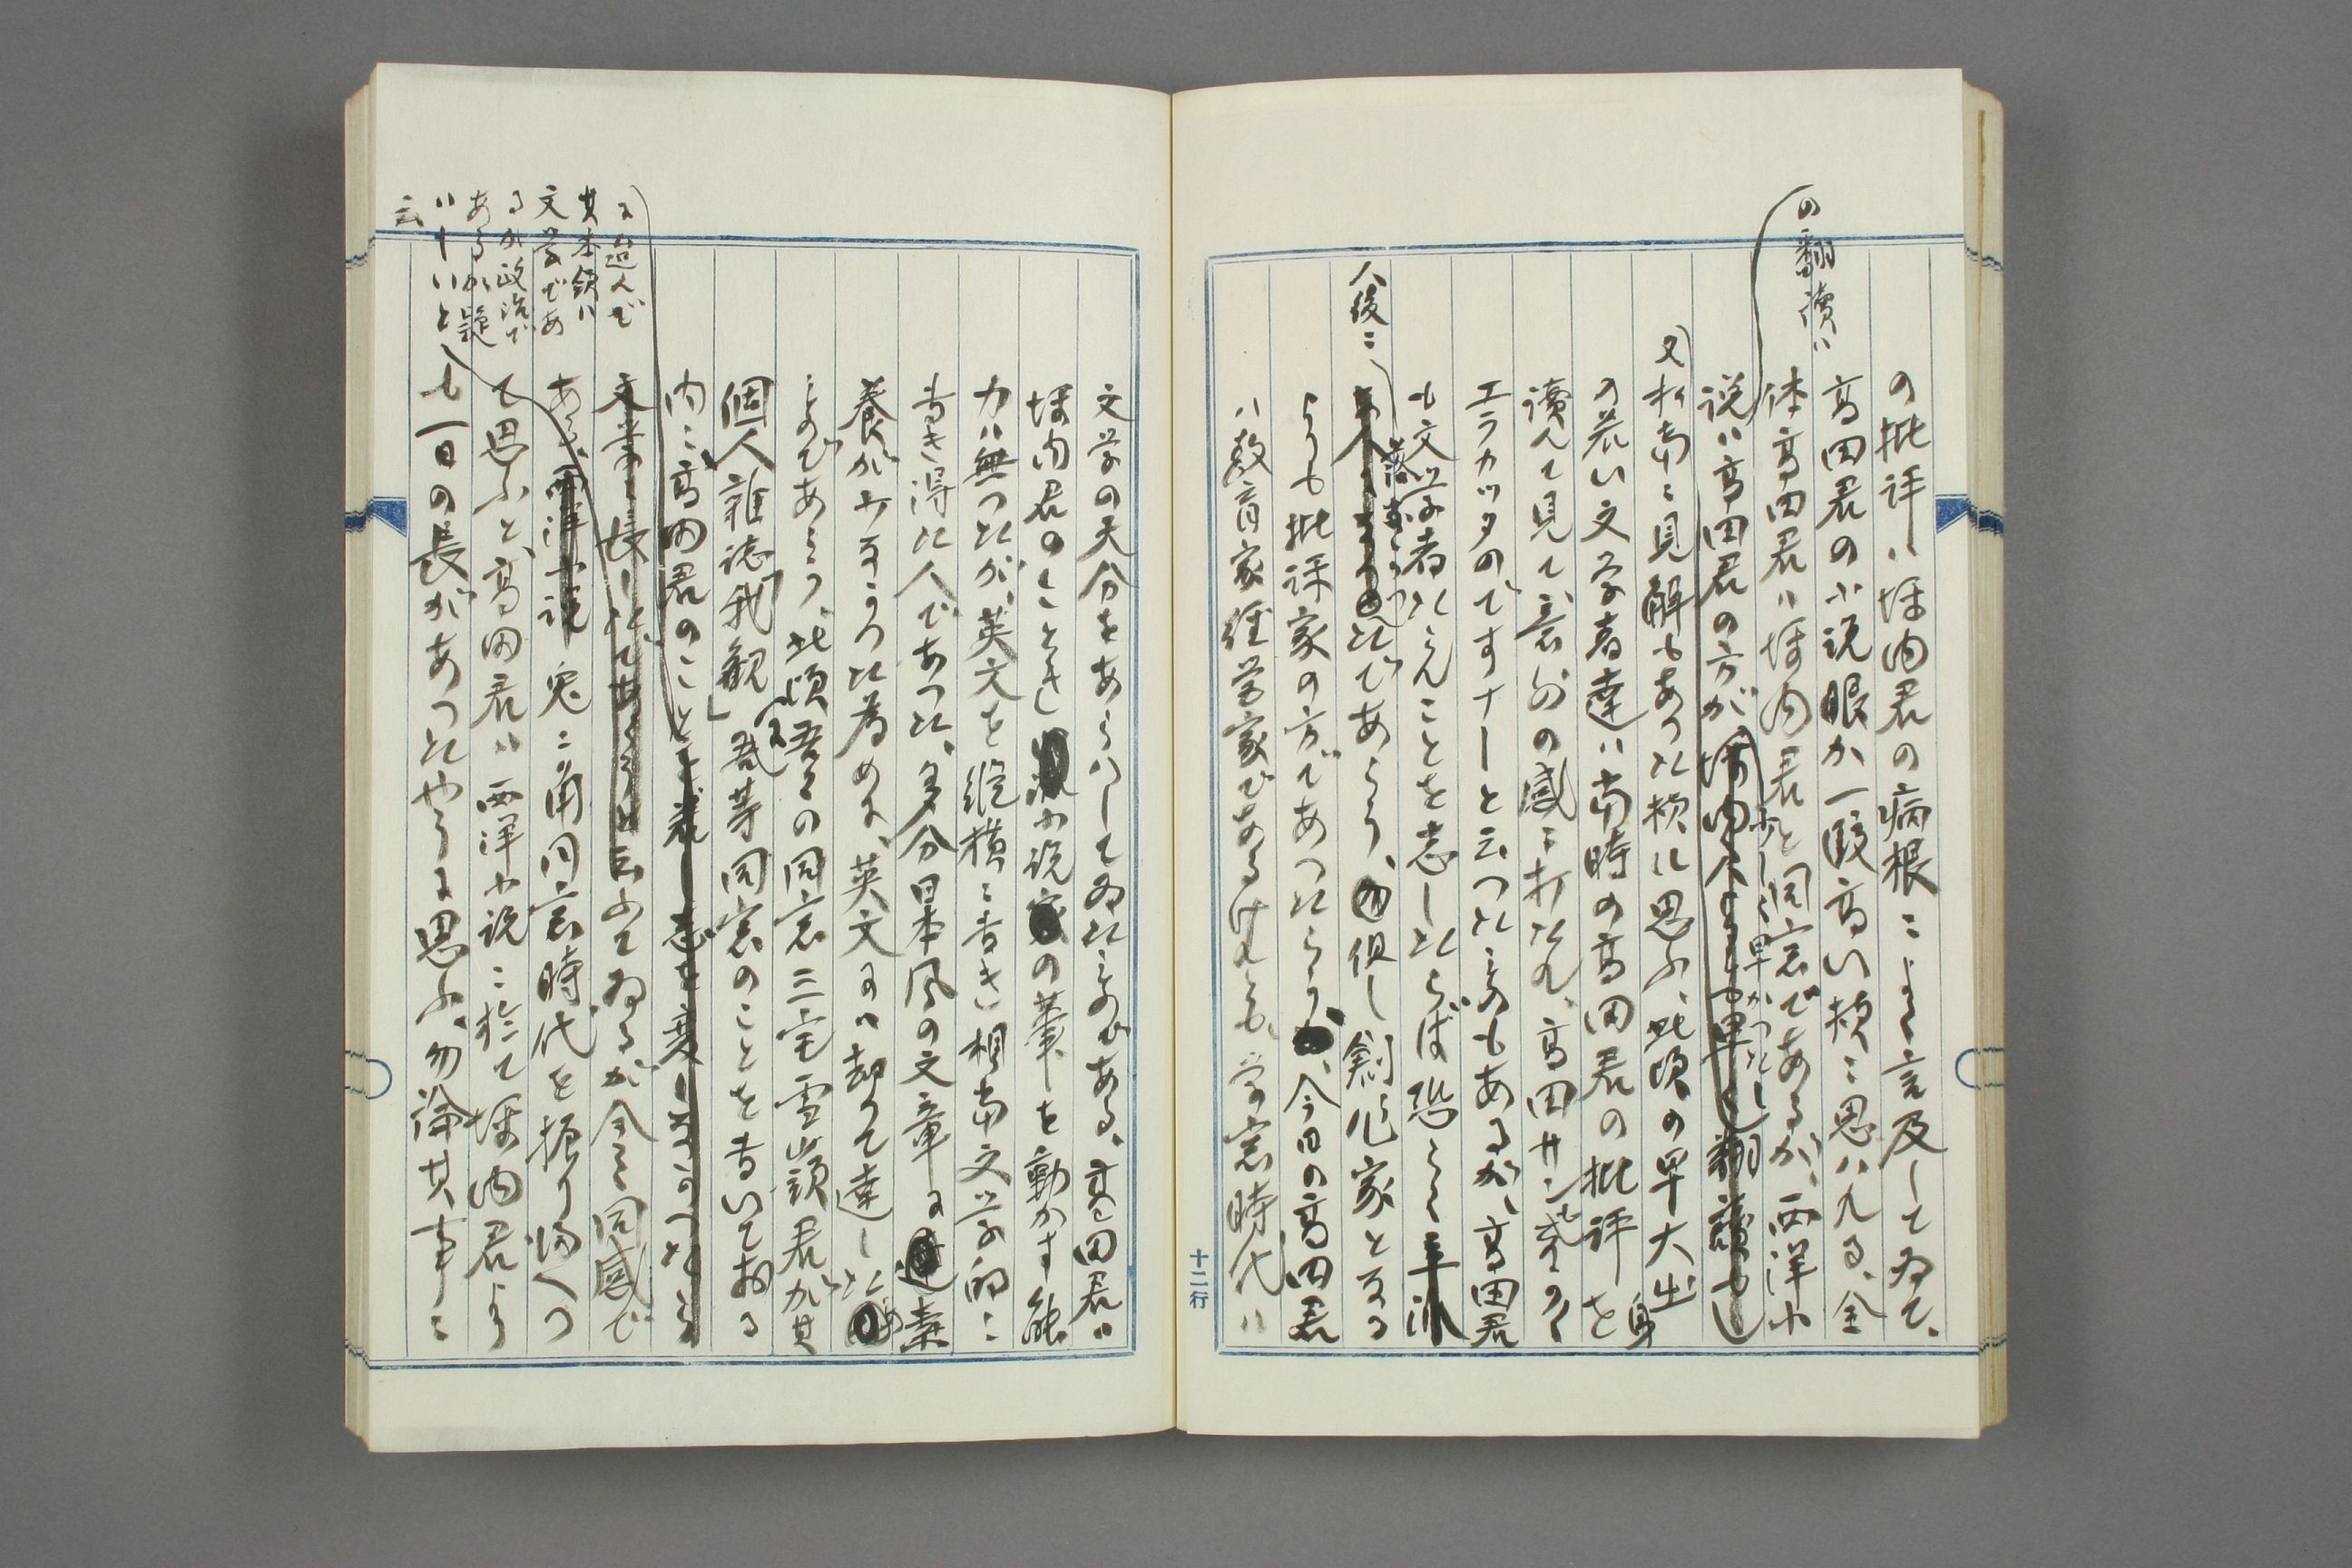 の翻讀ハ
の批評ハ坪内君の病根ニよく言及してゐて、
高田君の小説眼か一段高い様ニ思ハれる、全
体高田君ハ坪内君と同窓であるが、西洋小
説ハ高田君の方が少しく早かつたし
又相當ニ見解もあつた様に思ふ、此頃の早大出身
の若い文学者達ハ当時の高田君の批評を
讀んて見て、意外の感ニ打たれ、高田サンも
エラカッタのですナーと云つたものもあるが、高田君
も文学者たらんことを志したらば恐らく
人後ニ落まかつたであらう、但し創作家となる
よりも批評家の方であつたらう、今日の高田君
ハ教育家経営家であるけれとも、学窓時代ハ
文学の天分をあらハしてゐたものである、高田君ハ
坪内君のことき小説の筆を動かす能
力ハ無つたが、英文を縦横ニ書き相當文学的ニ
書き得た人であつた、多分日本風の文章に素
養が少なかつた為めに、英文にハ却つて達した
ものであらう、此頃吾々の同窓三宅雪嶺君が其
個人雑誌「我観」に吾等同窓のことを書いておる
内ニ、高田君のこと
に及んで
其本領ハ
文学であ
るか政治で
あるか疑
ハしいと
云ふてゐるが全く同感で
ある、兎ニ角同窓時代を振り帰つ
て思ふと、高田君ハ西洋小説ニ於て坪内君より
も一日の長があつたやうに思ふ、勿論其事ニ
十二行